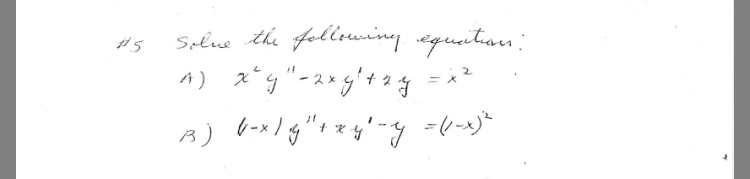 #5 Solve the following equations:
A) x² y" - 2xy' + 2y = x²
B) (1-x) y" + xy' - y = (1-x)²